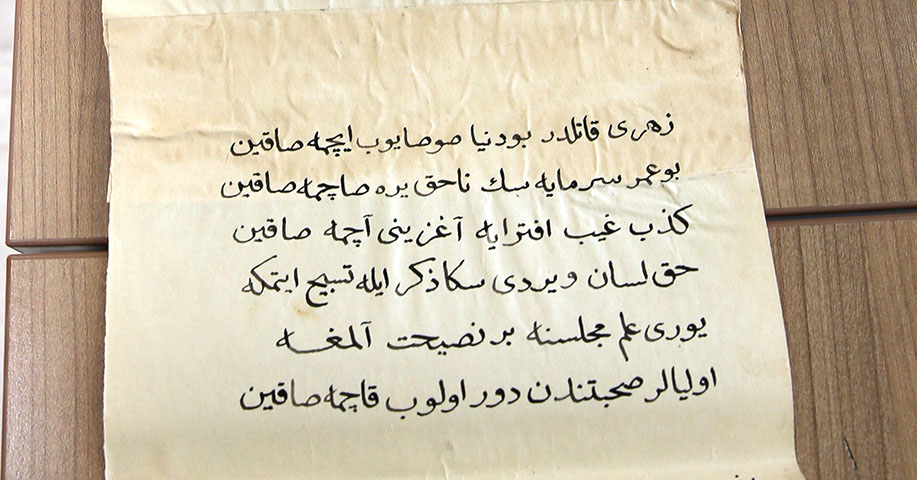 زهری قاتلدر بودنیا صوصایوب ایچمه صاقین
بو عمر سرمایه سك ناحق یره صاچمه صاقین
كذب غیب افترایه آغزینی آچمه صاقین
حق لسان ویردی سكا ذكر ایله تسبیح ایتمكه
یوری علم مجلسنه بر نصیحت آلمغه
اولیالر صحبتندن دور اولوب قاچمه صاقین